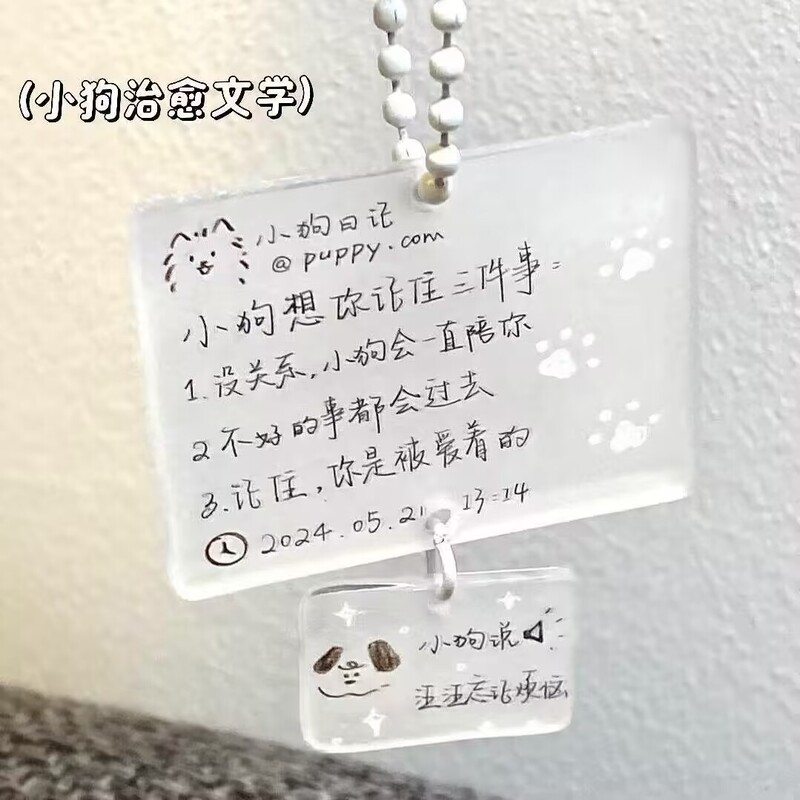 (小狗治愈文学)
小狗日记
@puppy.com
小狗想你记住三件事:
1.没关系,小狗会一直陪你
2 不好的事都会过去
3.记住,你是被爱着的
2024.05.21 13:14
小狗说
汪汪忘记烦恼